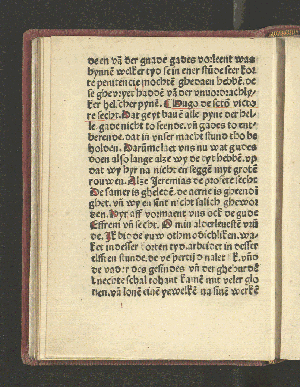 de en vn̄ der gnade gades vorleent was
bynnē welker tyd se in ener stūde seer kor
te penitencie mochtē ghedaen hebbē. de
se ghevryet hadde vā der unvordrachly⸗
ker helscher pyne. Hugo de seto victo
re secht. Dat geyt bauē alle pyne der hel
le. gade nicht to seende. vn̄ gades to ent⸗
berende. dat in vnser macht stund tho be
holden. Darūme laet vns nu wat gudes
doen also lange alze wy de tyt hebbē. vp
dat wy hyr na nicht en seggē myt grotē
rouwen. Alze Jeremias de profete secht
De samer is gheledē. de aerne is gheendi
ghet. vn̄ wy en sint nicht salich ghewor
den. Hyr aff vormaent vns ock de gude
Effrem vn̄ secht. O min alderleueste vrū
de. Ik bidde iuw othmodichliken. wa⸗
ket in desser korten tyd. arbeidet in desser
elften stunde. de vesper tijd nalet ik. vn̄
de vader des gesindes vn̄ der
knechte schal to hant kamē mit veler glo
rien. vn̄ lonē enē yewelkē na sinē werkē